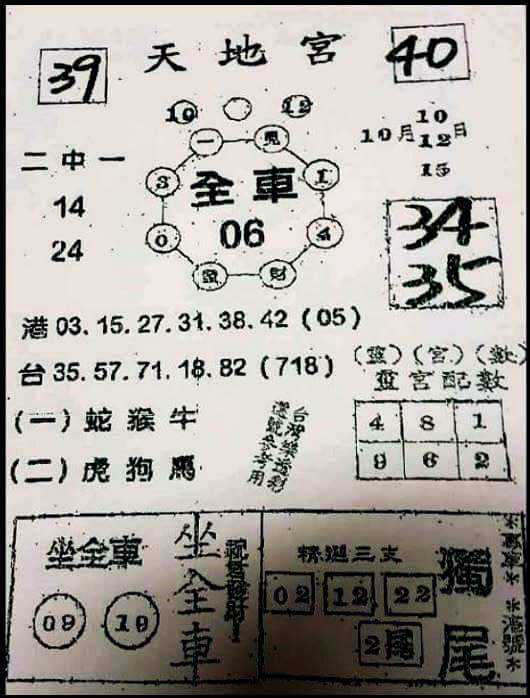 39 天地宮 40
10 12
10月 10 12 15 日
一 見
二中一
3 全車 1
14
0 06 4
24
靈 財
34
35
港 03. 15. 27. 31. 38. 42 (05)
台 35. 57. 71. 18. 82 (718)
(靈) (宮) (數)
靈宮配數
(一) 蛇猴牛
台灣樂透彩
選號參考用
4 8 1
9 6 2
(二) 虎狗馬
坐全車
09 19
坐全車
精選三支
02 12 22
2尾
獨尾